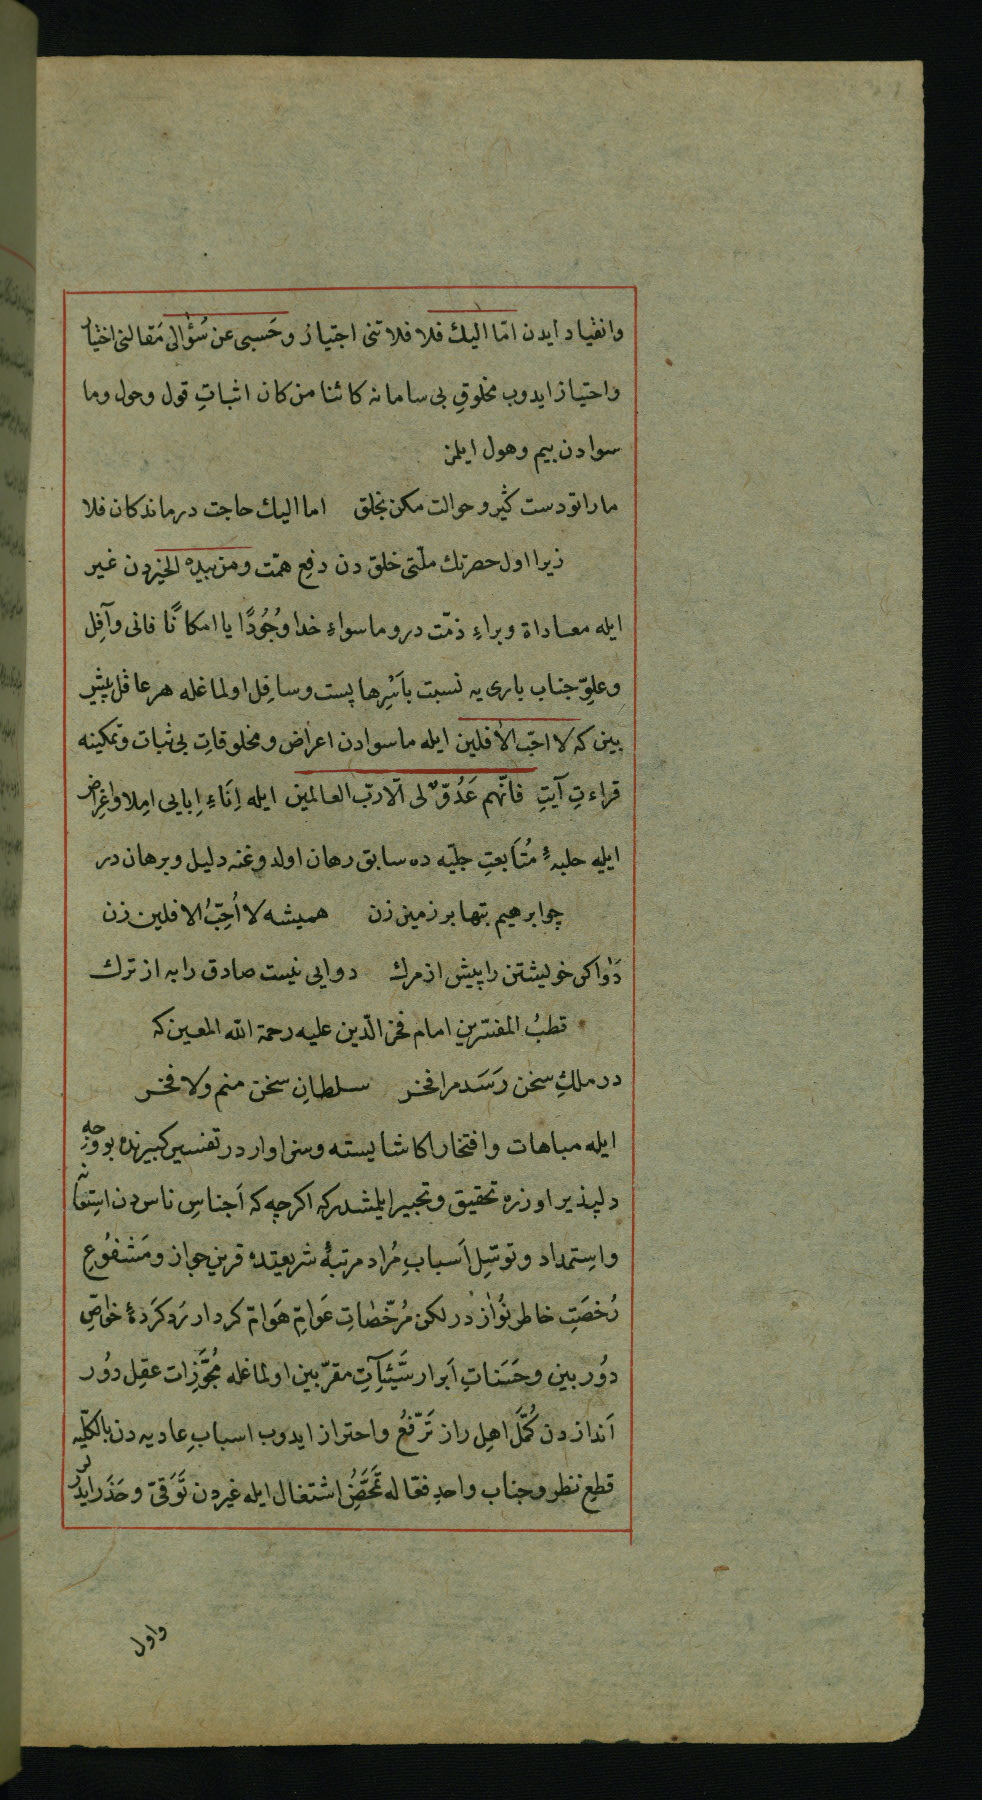 وانقیاد ایدن امّا الیك فلا فلاتنی اجتیاز و حَسبی عن سُؤالی مَقالنی اختیار
واحتیاز ایدوب مخلوقِ بی سامانه کائنا من کان اثباتِ قول وحول وما
سوادن بیم وهول ایلمز
مارا تو دست کیر و حوالت مکن بخلق اما الیك حاجت درماندکان فلا
زیرا اول حضرتك ملّتی خلق دن دفعِ همّت ومن بیده الخیردن غیر
ایله معاداة وبراءِ ذمّت در وماسواءِ خدا وجُودًا یا امکانًا فانی وآفِل
وعلوِّ جناب باری یه نسبت باَسْرِها پست وسافِل اولماغله هر عاقل پیش
بین که لا احبّ الآفلین ایله ماسوادن اعراض و مخلوقاتِ بی ثبات وتمکینه
قراءتِ آیتِ فانّهم عَدُوٌّ لی الّا ربّ العالمین ایله اِنَاءِ اِبایی املا واغراض
ایلیه حلبهٔ مُتَابعتِ جلیّه ده سابق رهان اولدوغنه دلیل وبرهان در
چو ابرهیم بتها بر زمین زن همیشه لا اُحِبُّ الافلین زن
دَوا کن خویشتن را پیش از مرك دوایی نیست صادق را به از ترك
قطبُ المفسّرین امام فخر الدّین علیه رحمة اللّه المعین که
در ملكِ سخن رَسَد مرا فخر سلطانِ سخن منم ولا فخر
ایله مباهات وافتخار اکا شایسته وسزاوار در تفسیر کبیرنده بو وجه
دلپذیر اوزره تحقیق وتحبیر ایلمشدر که اکرچه که اَجناسِ ناس دن استعانه
واِستمداد وتوسّلِ اَسبابِ مُراد مرتبهٔ شریعتده قرینِ جواز ومَشفُوعِ
رُخصَتِ خاطر نُوٰاز در لکن مُرخّصاتِ عَوامِّ هَوامّ کردار رَد کَردَهٔ خواصِّ
دُوربین وحَسَناتِ اَبرار سَیّئآتِ مقرّبین اولماغله مُجَوَّزات عقلِ دُور
اَندازدن کُمَّلَ اهلِ راز تَرَفُّعُ واحتراز ایدوب اسبابِ عادیه دن بالکلّیه
قطعِ نظر وجنابِ واحدِ فعّاله تَمَحُّضِ اشتغال ایله غیردن تَوَقّی وحَذَر ایدرلر
واول